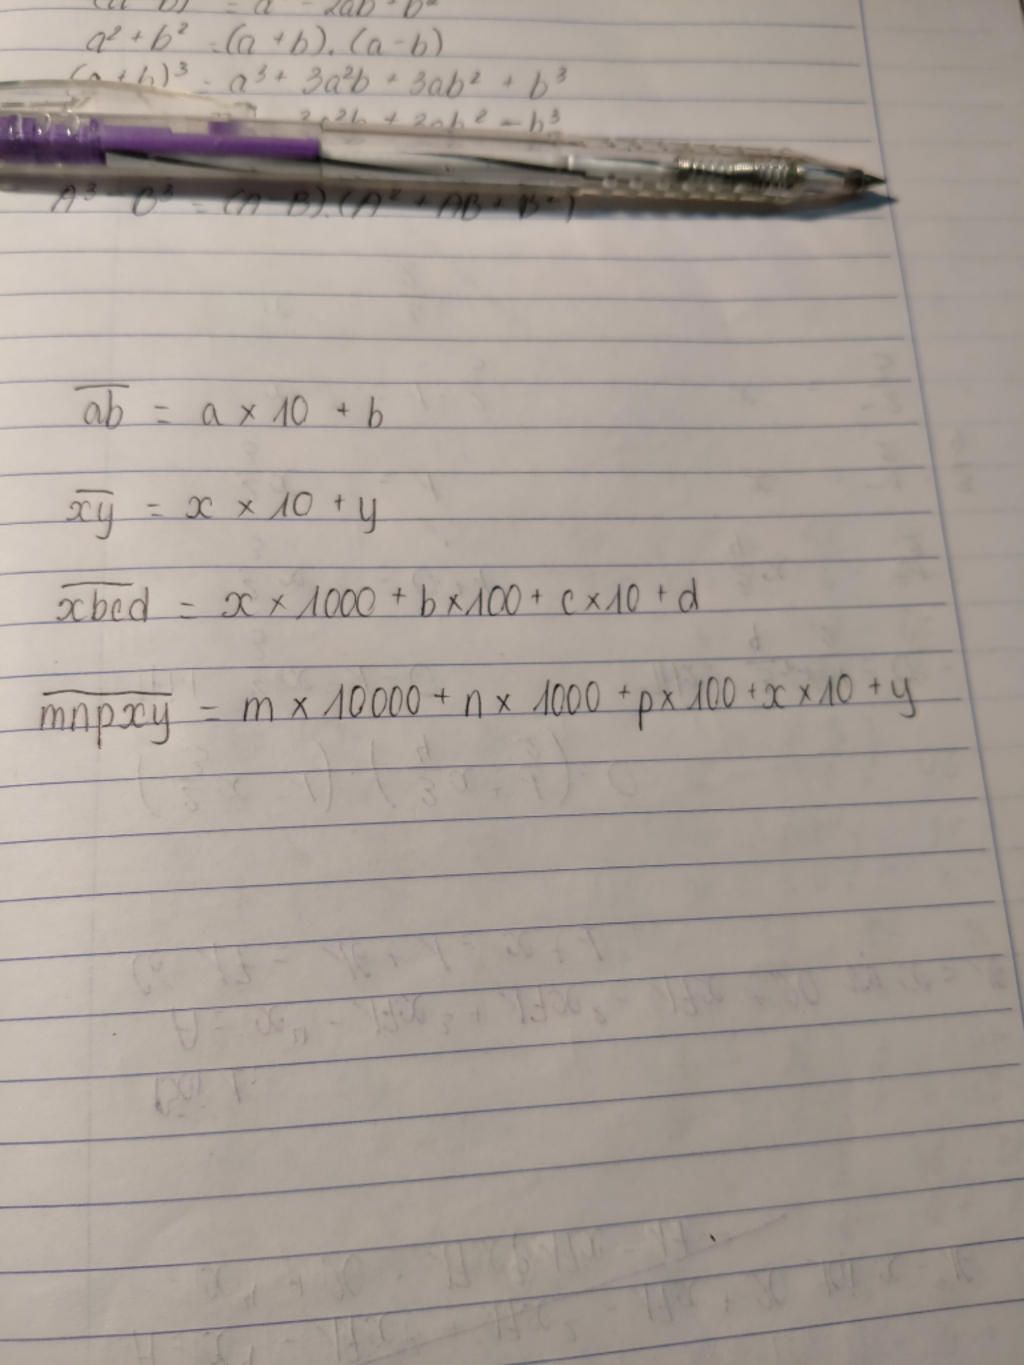 = a² - 2ab + b²
a² + b² = (a + b).(a - b)
(a + b)³ = a³ + 3a²b + 3ab² + b³
3a²b + 3ab² - b³
A³ - B³ = (A - B).(A² + AB + B²)
\overline{ab} = a × 10 + b
\overline{xy} = x × 10 + y
\overline{xbcd} = x × 1000 + b × 100 + c × 10 + d
\overline{mnpxy} = m × 10000 + n × 1000 + p × 100 + x × 10 + y